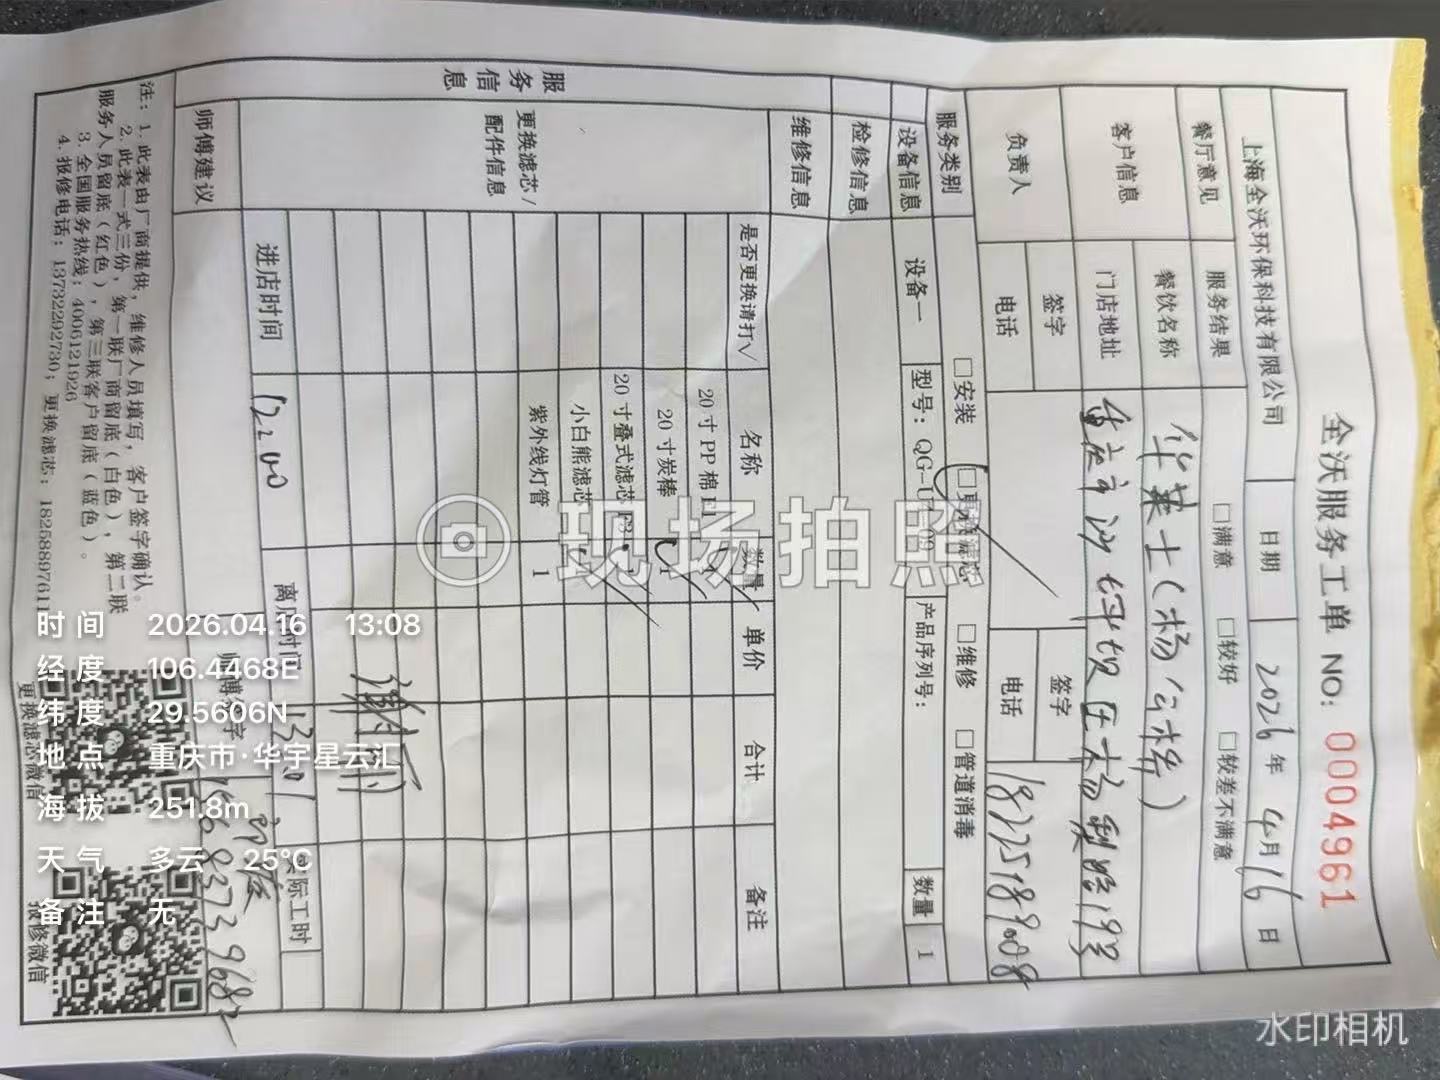 全沃服务工单 NO: 0004961
上海全沃环保科技有限公司 日期 2026 年 4 月 16 日
餐厅意见 服务结果 □满意 □较好 □较差不满意
客户信息 餐饮名称 华莱士(杨公桥)
门店地址 重庆市沙坪坝区
负责人 签字 签字
电话 电话 18225189008
服务类别 □安装 □更换滤芯 □维修 □管道消毒
设备信息 设备一 型号: 产品序列号: 数量 1
检修信息
维修信息
服务信息
更换滤芯/配件信息 是否更换请打√ 名称 数量 单价 合计 备注
20寸PP棉
20寸炭棒
20寸叠式滤芯
小白熊滤芯
紫外线灯管 1
进店时间 12:00 离店时间 实际工时
师傅建议
注: 1. 此表由厂商提供, 维修人员填写, 客户签字确认。
2. 此表一式三份, 第一联厂商留底(白色), 第二联
服务人员留底(红色), 第三联客户留底(蓝色)。
3. 全国服务热线: 4006121926
4. 报修电话: 13732292730; 更换滤芯: 18258897611
更换滤芯微信
报修微信
现场拍照
时间 2026.04.16 13:08
经度 106.4468E
纬度 29.5606N
地点 重庆市·华宇星云汇
海拔 251.8m
天气 多云 25℃
备注 无
水印相机